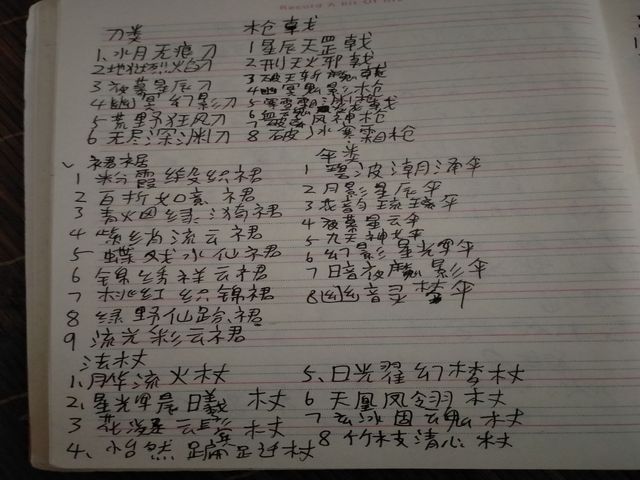 刀类
1、水月无痕刀
2地狱烈火刀
3夜幕星辰刀
4幽冥幻影刀
5荒野狂风刀
6无尽深渊刀
枪戟
1星辰天罡戟
2刑天火邪戟
3破天斩魔戟
4幽冥鬼影枪
6血 风神枪
8破冰寒霜枪
裙裾
1粉霞缎织裙
2百折如意裙
3青火凤绿漪裙
4紫绡流云裙
5蝶戏水仙裙
6锦绣祥云裙
7桃红织锦裙
8绿野仙踪裙
9流光彩云裙
伞类
1碧波潮泽伞
2月影星辰伞
3花韵琉璃伞
4夜幕星云伞
5九天神龙伞
6幻影星光雪伞
7暗夜魔影伞
8幽音灵梦伞
法杖
1、月华流火杖
2、星光晨曦杖
3花 云影杖
4、怡然 杖
5、日光耀幻梦杖
6天凰凤翎羽杖
7玄冰固云鬼杖
8竹枝清心杖